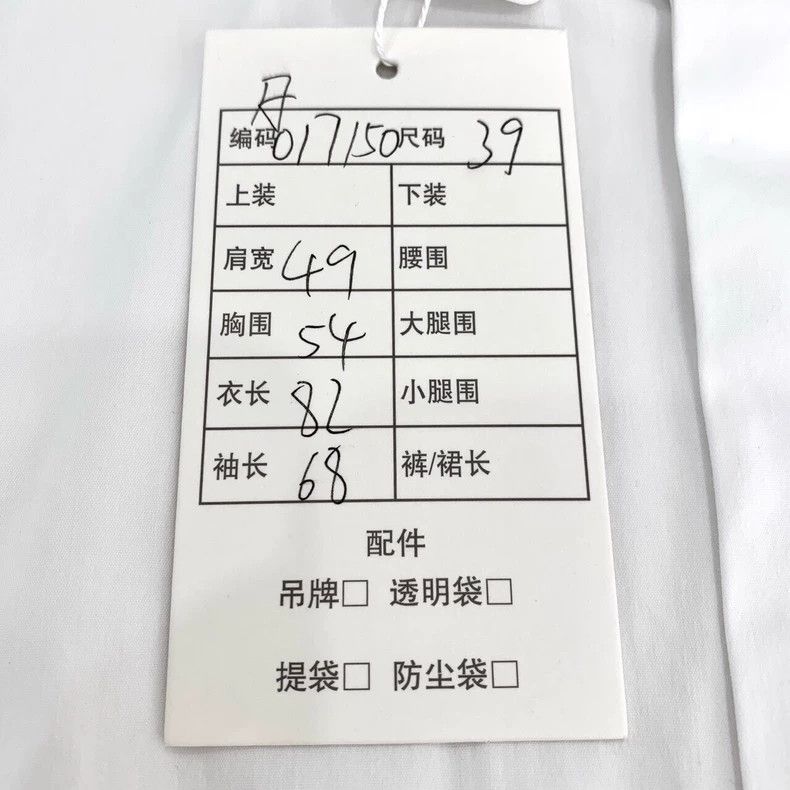 编码 017150 尺码 39
上装 下装
肩宽 49 腰围
胸围 54 大腿围
衣长 82 小腿围
袖长 68 裤/裙长
配件
吊牌□ 透明袋□
提袋□ 防尘袋□